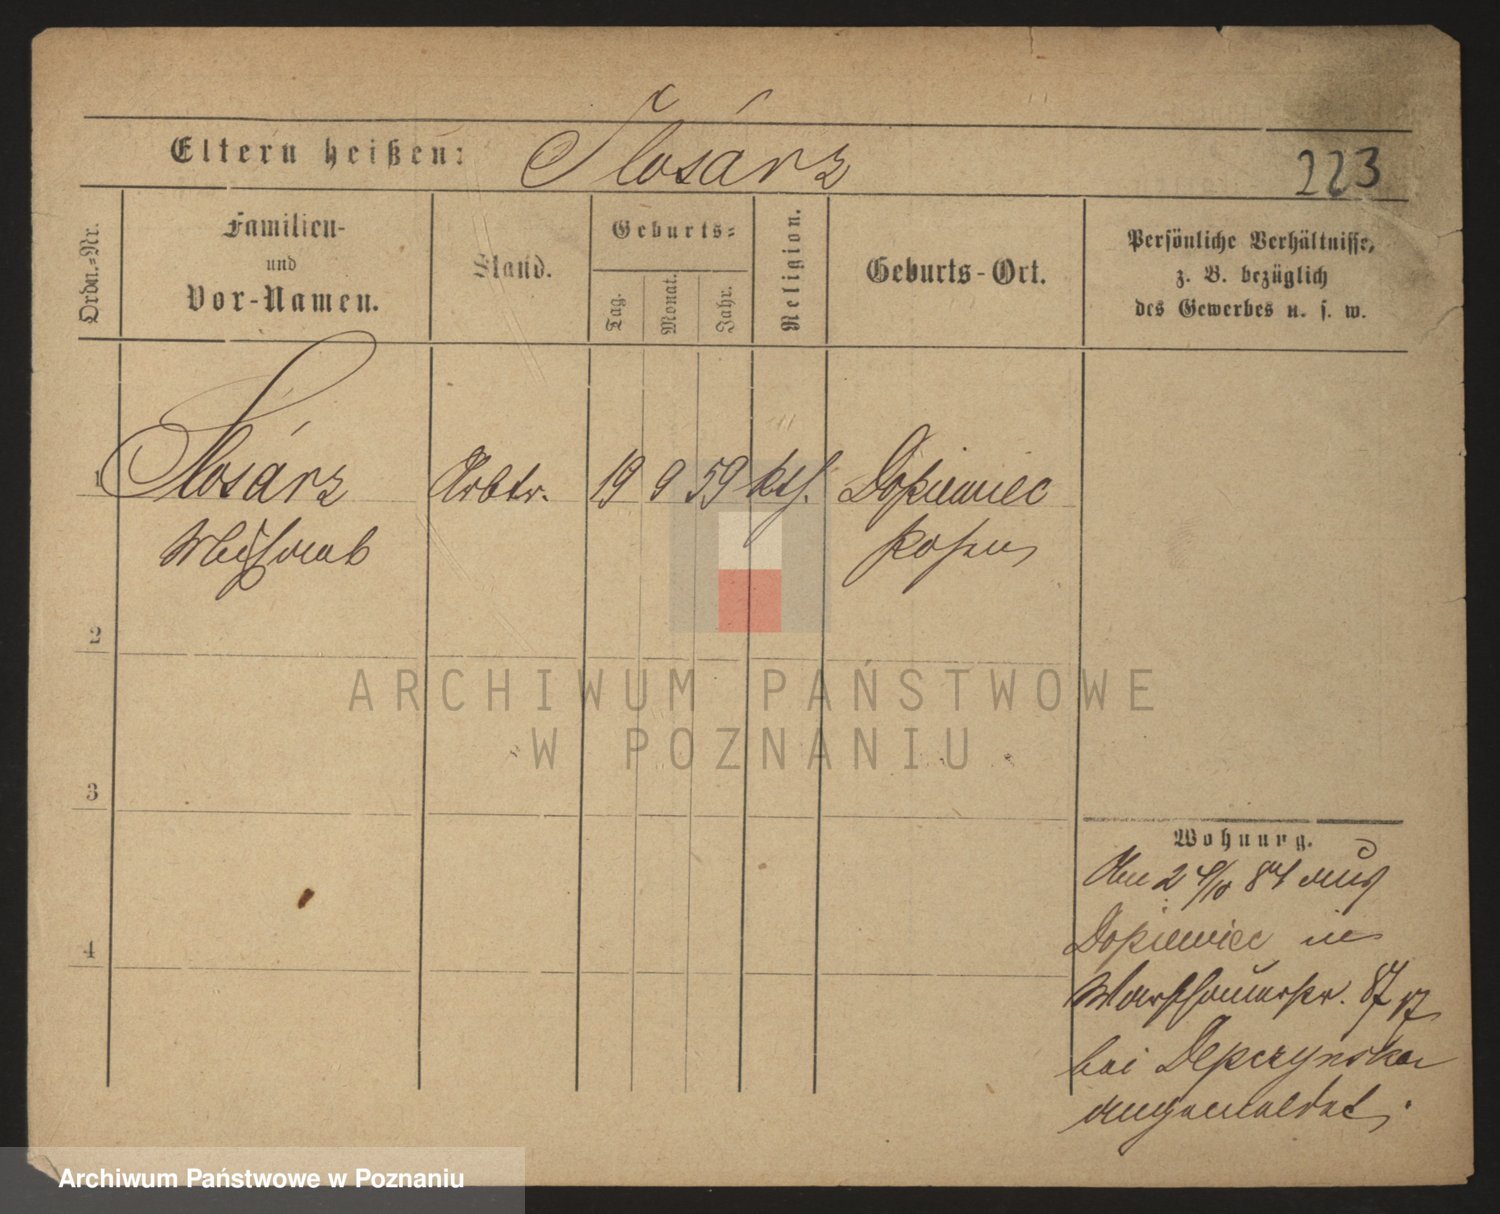 Eltern heißen: Slosárz
223
Ordn.-Nr.
Familien-
und
Vor-Namen.
Stand.
Geburts-
Tag.
Monat.
Jahr.
Religion.
Geburts-Ort.
Persönliche Verhältnisse,
z. B. bezüglich
des Gewerbes u. s. w.
1 Slosárz Arbtr. 19 9 59 kth. Dopiewiec
Posen
2
3
4
Wohnung.
Am 2 4/10 84 aus
Dopiewiec in
Warschauerstr. 87
bei Depczynska
angemeldet.
ARCHIWUM PAŃSTWOWE
W POZNANIU
Archiwum Państwowe w Poznaniu